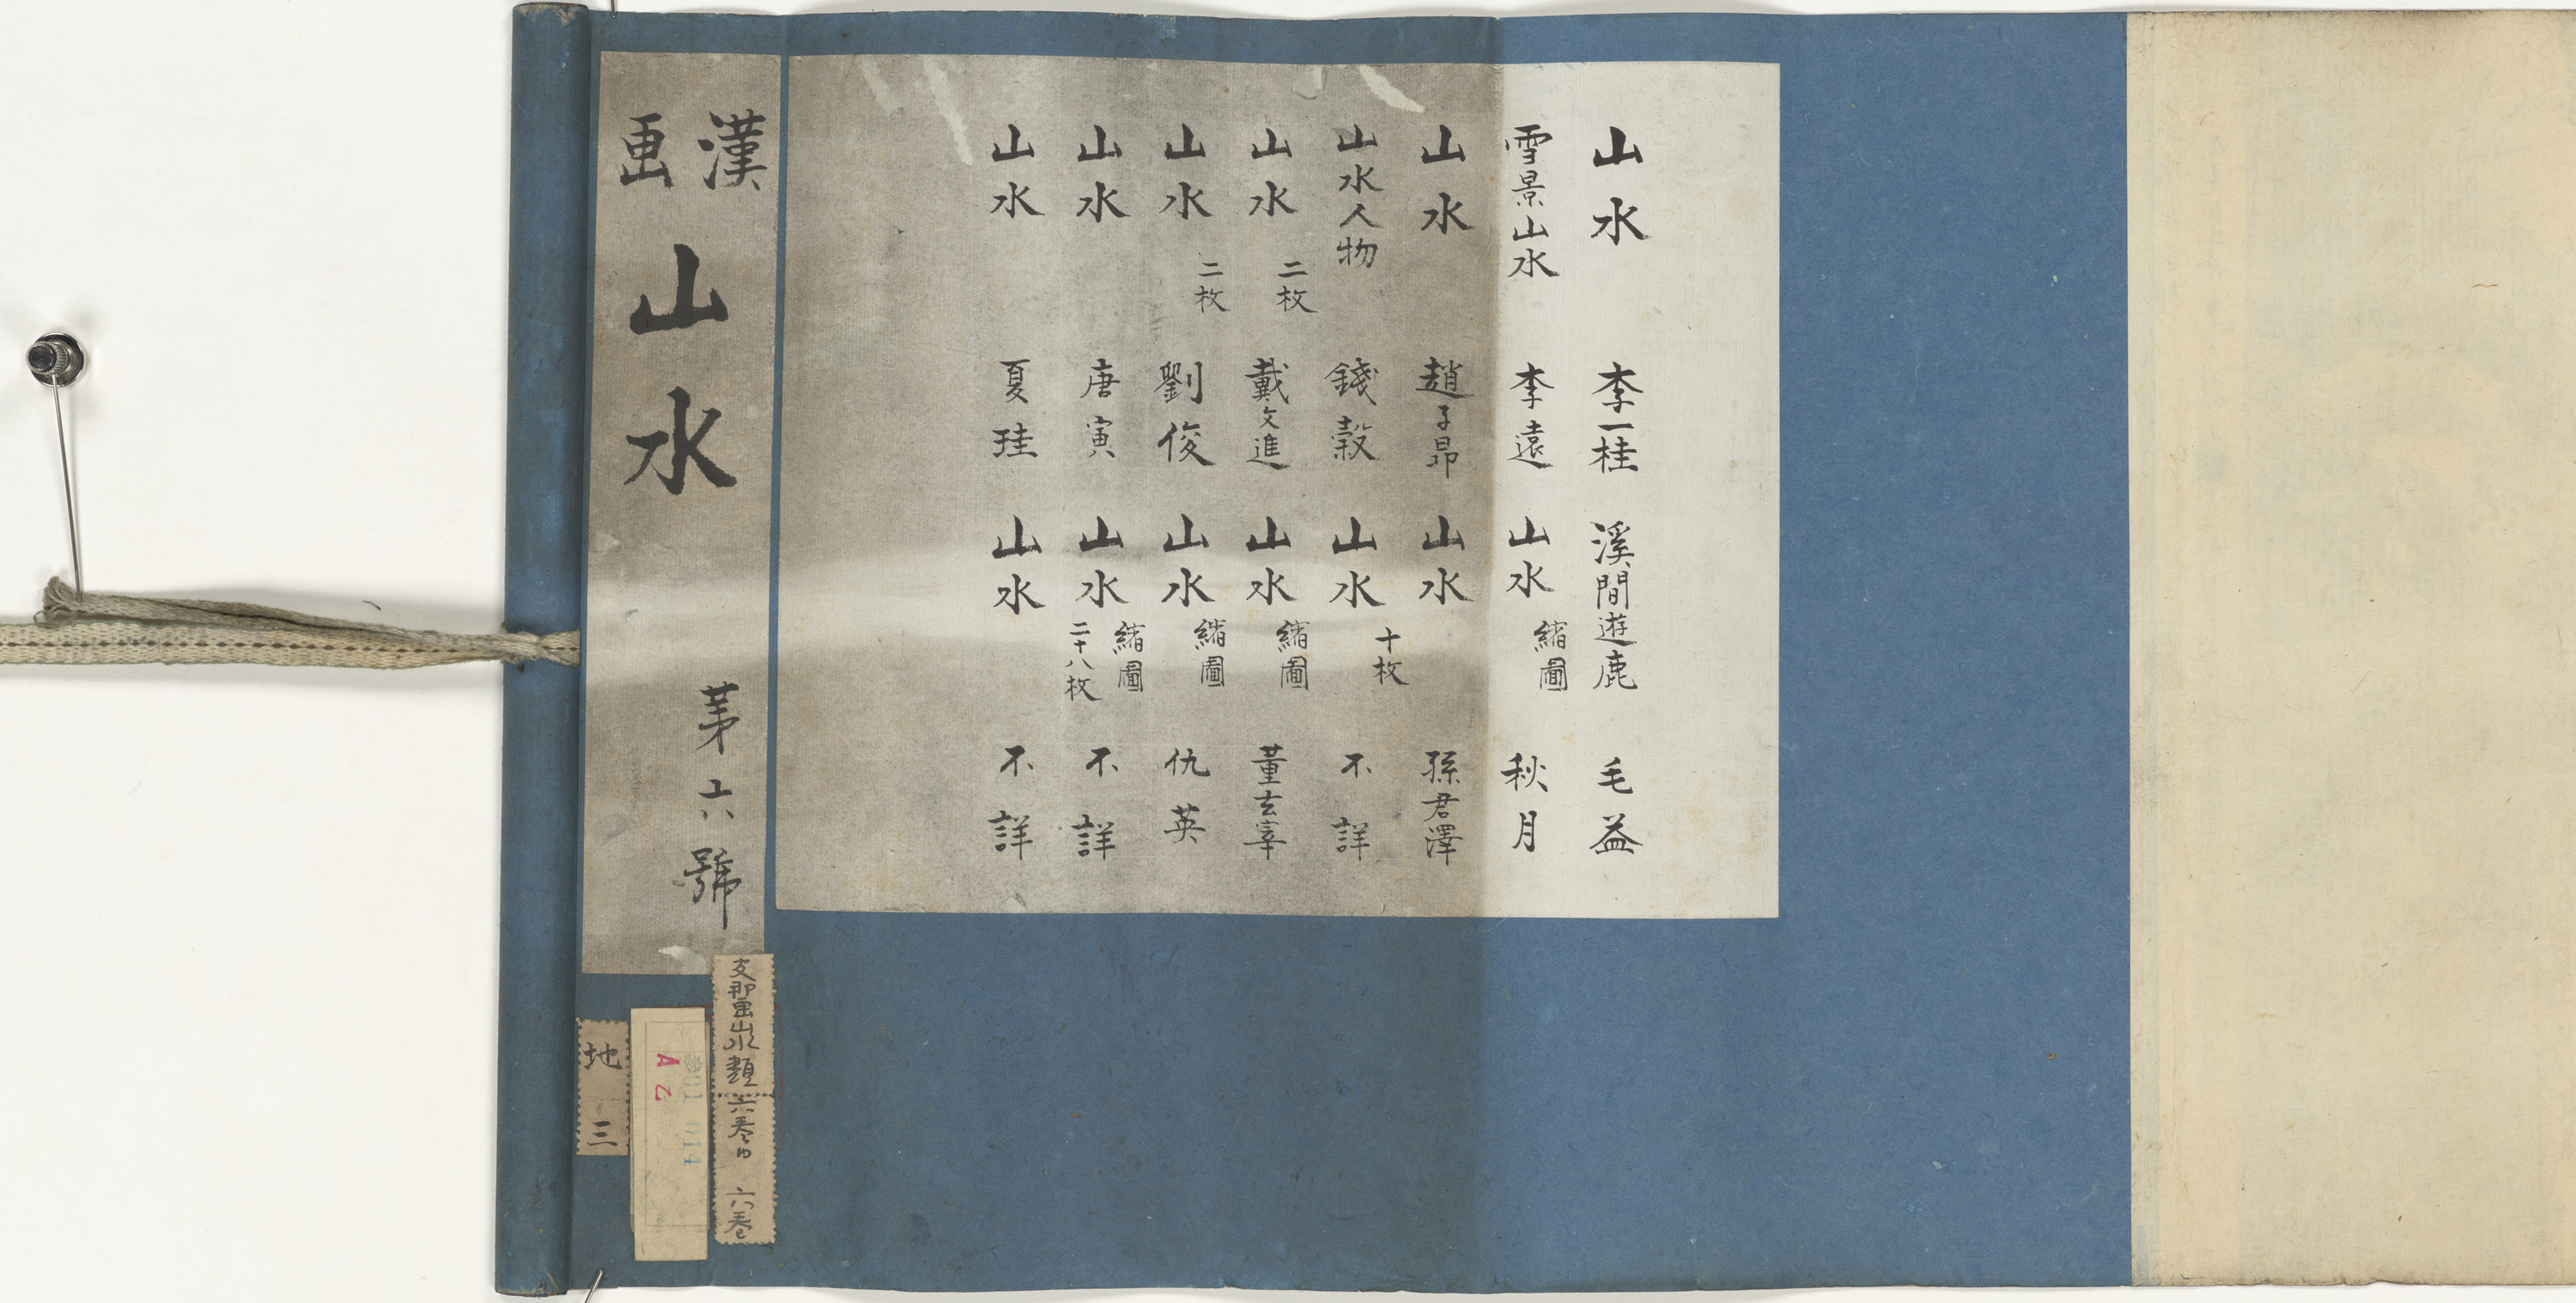 山水 李一桂 溪間遊鹿 毛益
雪景山水 李遠 山水 縮圖 秋月
山水 趙子昂 山水 孫君澤
山水人物 錢穀 山水 十枚 不詳
山水 二枚 戴文進 山水 縮圖 董玄宰
山水 二枚 劉俊 山水 縮圖 仇英
山水 唐寅 山水 縮圖 二十八枚 不詳
山水 夏珪 山水 不詳
漢画 山水 第六號
支那画山水類 六巻ノ内 六巻
A 2
地 三